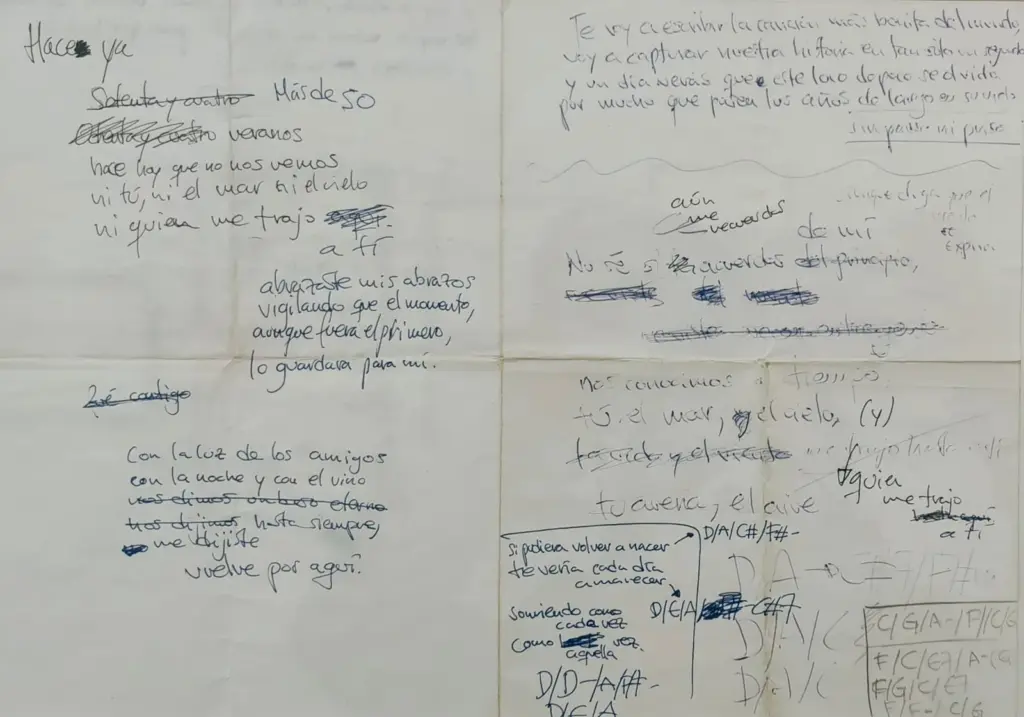 Hace ya
Setenta y cuatro Más de 50
Ochenta y cuatro veranos
hace hoy que no nos vemos
ni tú, ni el mar ni el cielo
ni quien me trajo
a tí
abrazaste mis abrazos
vigilando que el momento,
aunque fuera el primero,
lo guardara para mi.
contigo
Con la luz de los amigos
con la noche y con el vino
nos dimos un beso eterno
nos dijimos, hasta siempre,
me dijiste
vuelve por aquí.
Te voy a escribir la canción más bonita del mundo,
voy a capturar nuestra historia en tan sólo un segundo
y un día verás que este loco de poco se olvida
por mucho que pasen los años de largo en su vida
sin pausa ni prisa
aún
me recuerdas
de mí
No sé si acuerdas del principio,
nos conocimos
tú, el mar, y el cielo, (y)
quien
me trajo
a tí
tu arena, el aire
D/A/C#/F#-
si pudiera volver a nacer
te vería cada día
amanecer
sonriendo como
cada vez
como vez
aquella
D/E/A/ C#7
D/D-/A/F#-
D/E/A
D A
D/A/C
D/A/C
C/G/A-/F//C/G
F/C/E7/A-
F/G/C/E7
F/F-/C/G